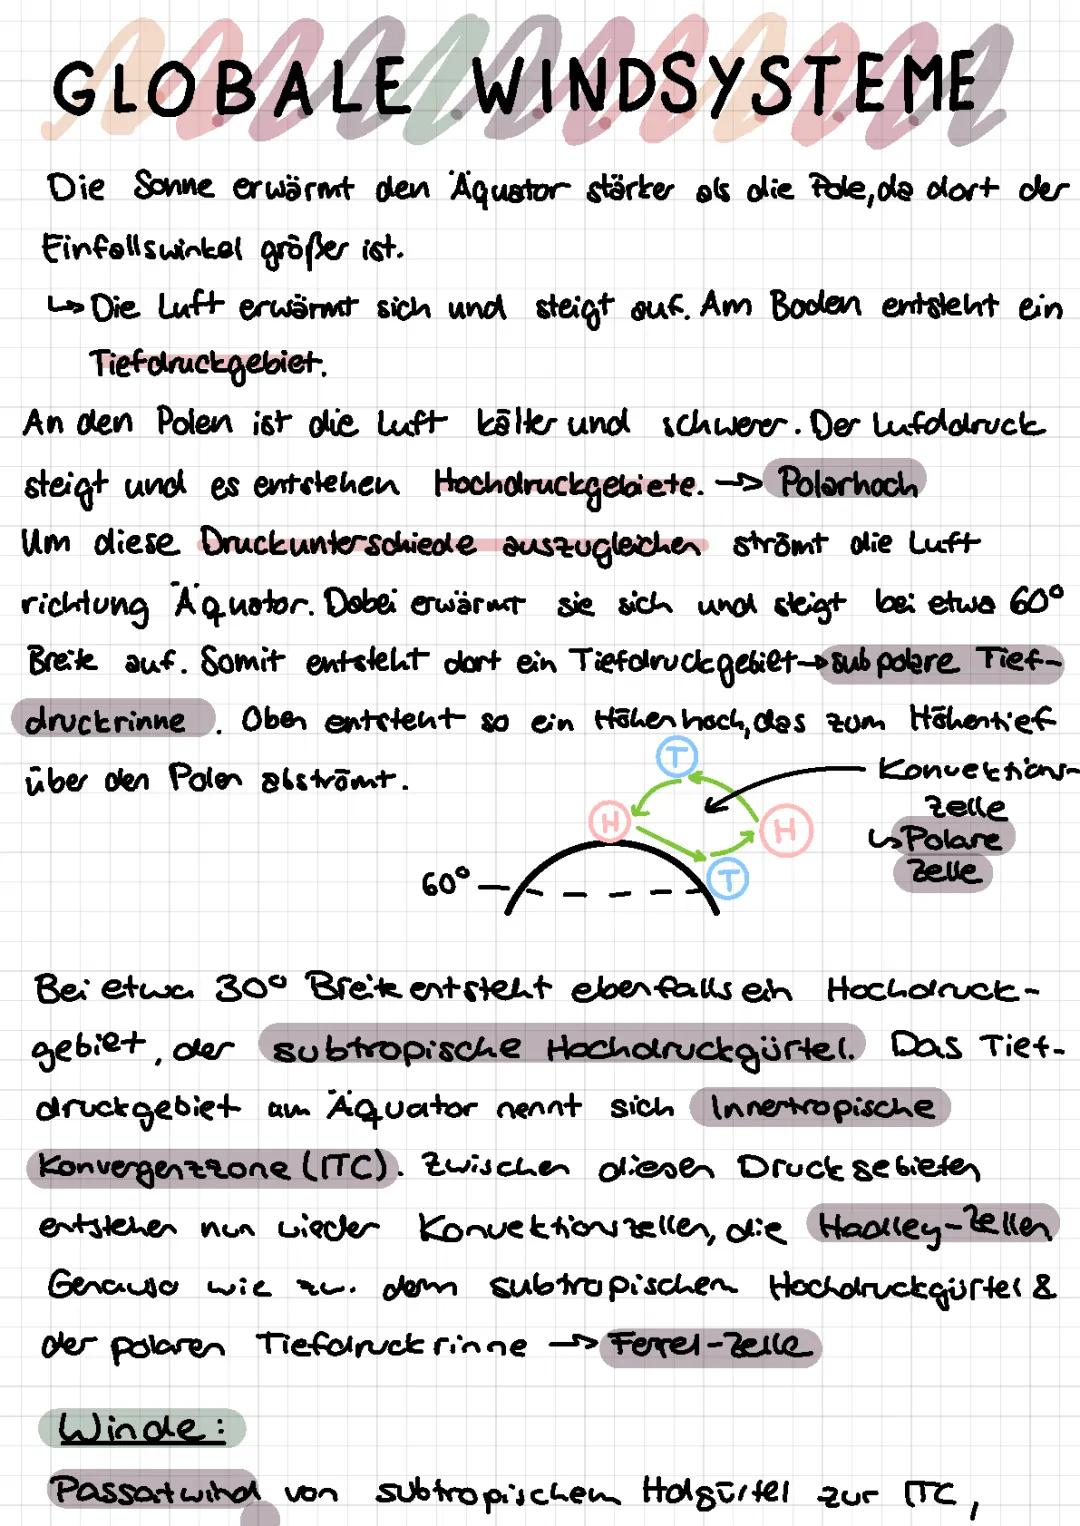 GLOBALE WINDSYSTEME
Die Sonne erwärmt den Äquator stärker als die Pole, da dort der
Einfallswinkel größer ist.
↳ Die Luft erwärmt sich und steigt auf. Am Boden entsteht ein
Tiefdruckgebiet.
An den Polen ist die Luft kälter und schwerer. Der Lufddruck
steigt und es entstehen Hochdruckgebiete. → Polarhoch
Um diese Druckunterschiede auszugleichen strömt die Luft
richtung Äquator. Dabei erwärmt sie sich und steigt bei etwa 60°
Breite auf. Somit entsteht dort ein Tiefdruckgebiet → subpolare Tief-
druckrinne. Oben entsteht so ein Höhenhoch, das zum Höhentief
über den Polen abströmt.
T
Konvektions-
zelle
H
H
↳ Polare
Zelle
60°
T
Bei etwa 30° Breite entsteht ebenfalls ein Hochdruck-
gebiet, der subtropische Hochdruckgürtel. Das Tief-
druckgebiet am Äquator nennt sich Innertropische
Konvergenzzone (ITC). Zwischen diesen Druckgebieten
entstehen nun wieder Konvektionszellen, die Hadley-Zellen
Genauso wie zw. dem subtropischen Hochdruckgürtel &
der polaren Tiefdruckrinne → Ferrel-Zelle
Winde:
Passatwind von subtropischem Holgürtel zur ITC,